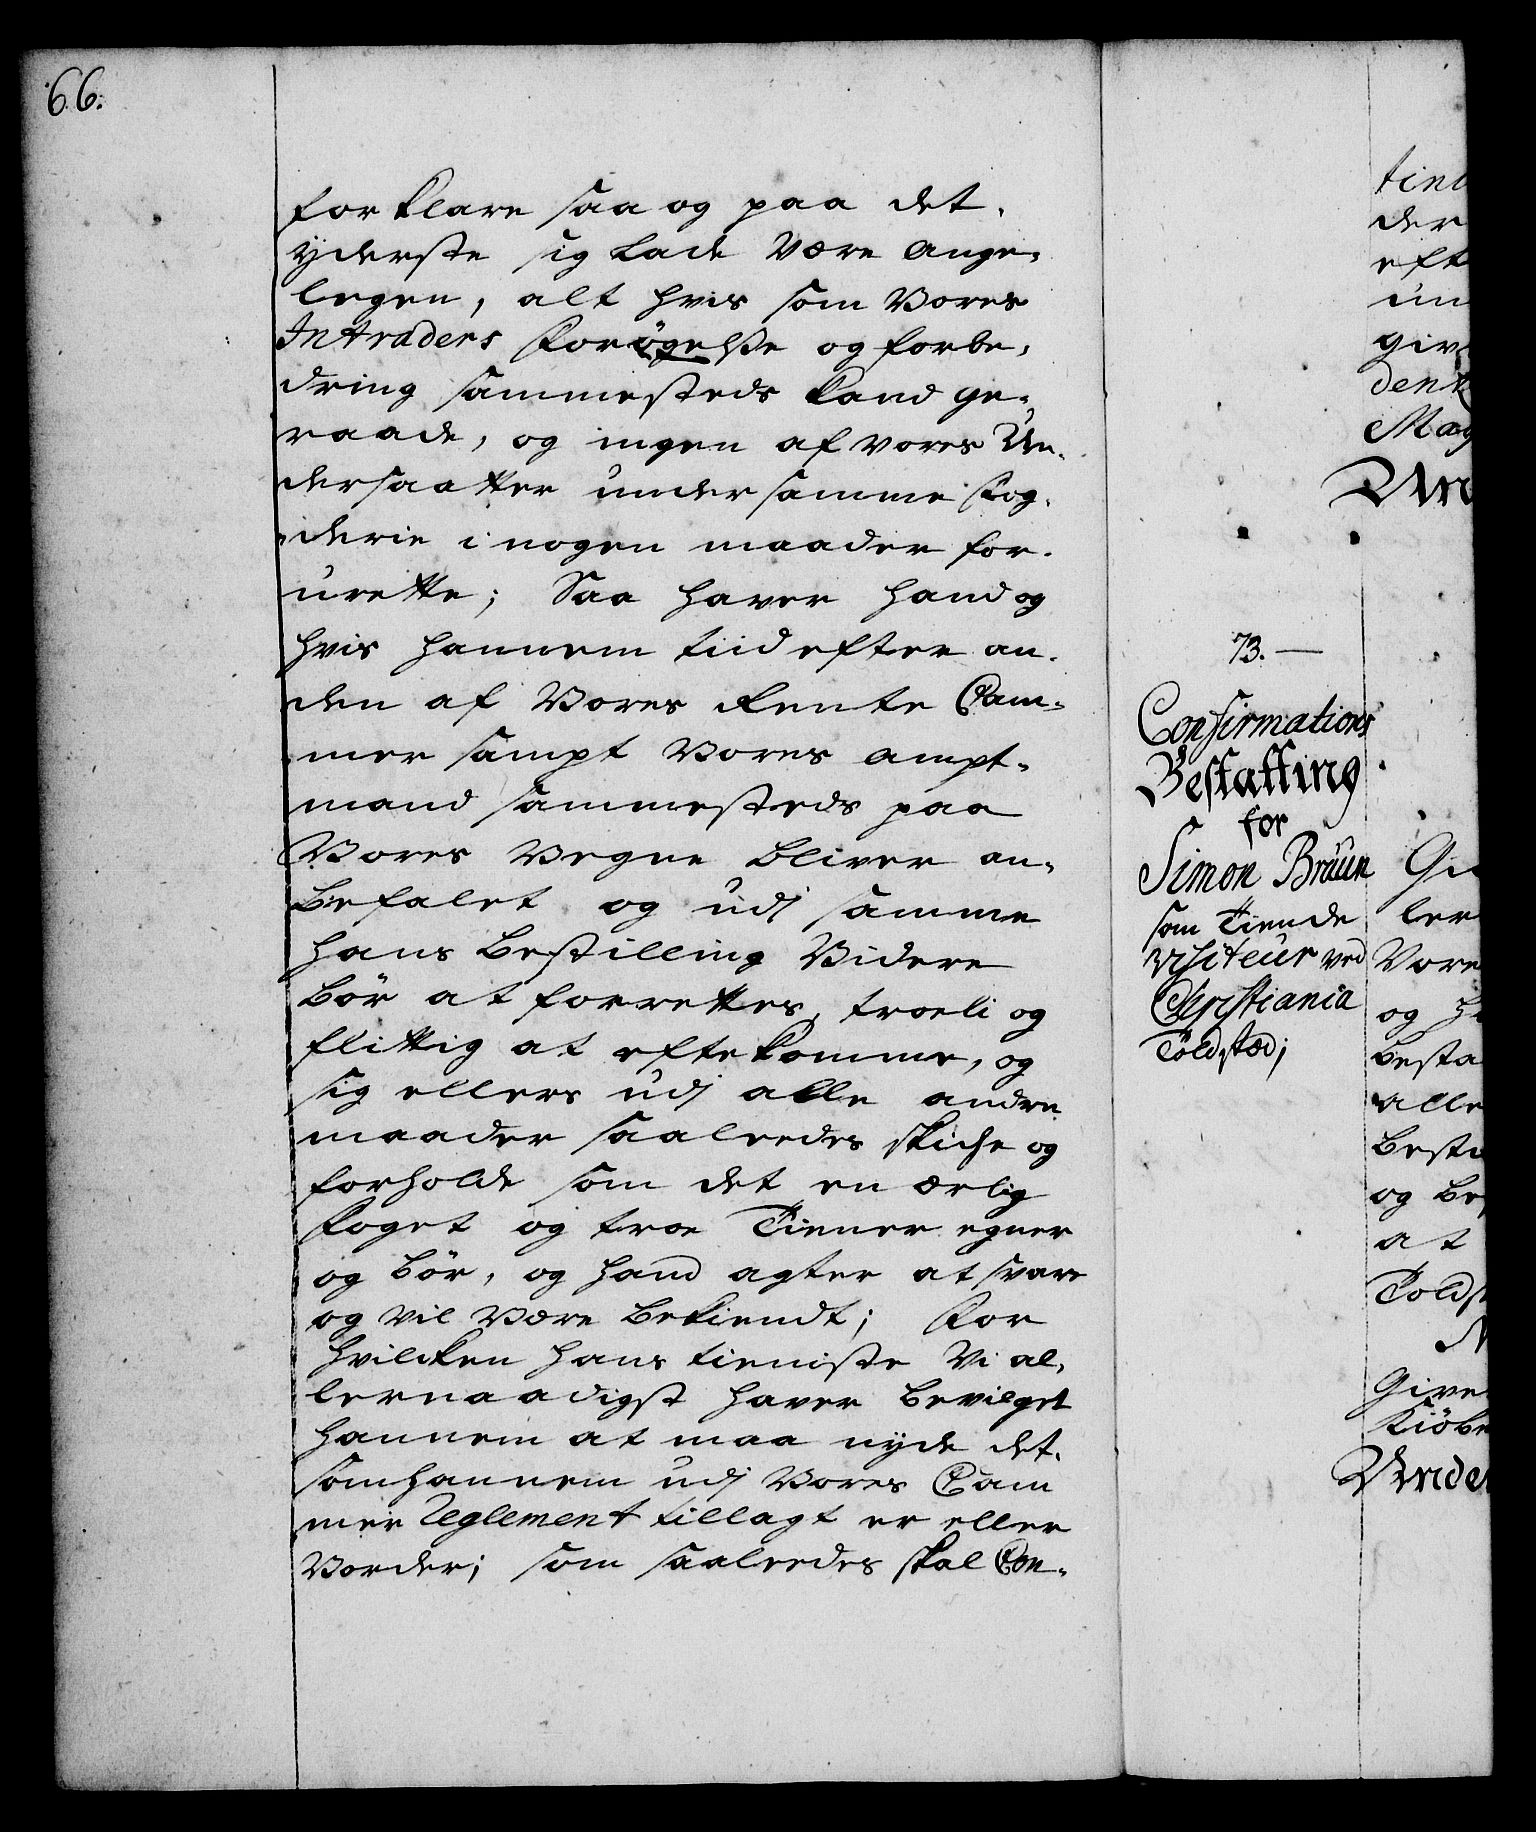 66.
forklare saa og paa det
yderste sig lade Være ange-
legen, alt hvis som Vores
Intraders Forögelse og forbe-
dring sammesteds kand ge-
raade, og ingen af vores Un-
dersaatter under samme Fog-
derie i nogen maader for-
urette; Saa haver hand og
hvis hannem tiid efter an-
den af Vores Rente Cam-
mer sampt Vores Ampt-
mand sammesteds paa
Vores Vegne bliver an-
befalet og udj samme
hans bestilling Videre
bör at forrettes, troeli og
flittig at efterkomme, og
sig ellers udj alle andre
maader saaledes skiche og
forholde som det en ærlig
Foget og troe Tiener egner
og bör, og hand agter at svare
og vil Være bekiendt; For
hvilcken hans tieniste Vi al-
lernaadigst haver bevilget
hannem at maa nyde det
som hannem udj Vores Cam
mer Reglement tillagt er eller
Vorder; som saaledes skal Con-
73.
Confirmations
Bestalling
for
Simon Bruun
som Tiende
Visiteur ved
Christiania
Toldsted;
tien
der
eft
un
giv
denk
May
Un
Gi
ler
Vore
og h
besta
alle
besta
og be
at
Tolds
N
Give
Kiöbe
Under